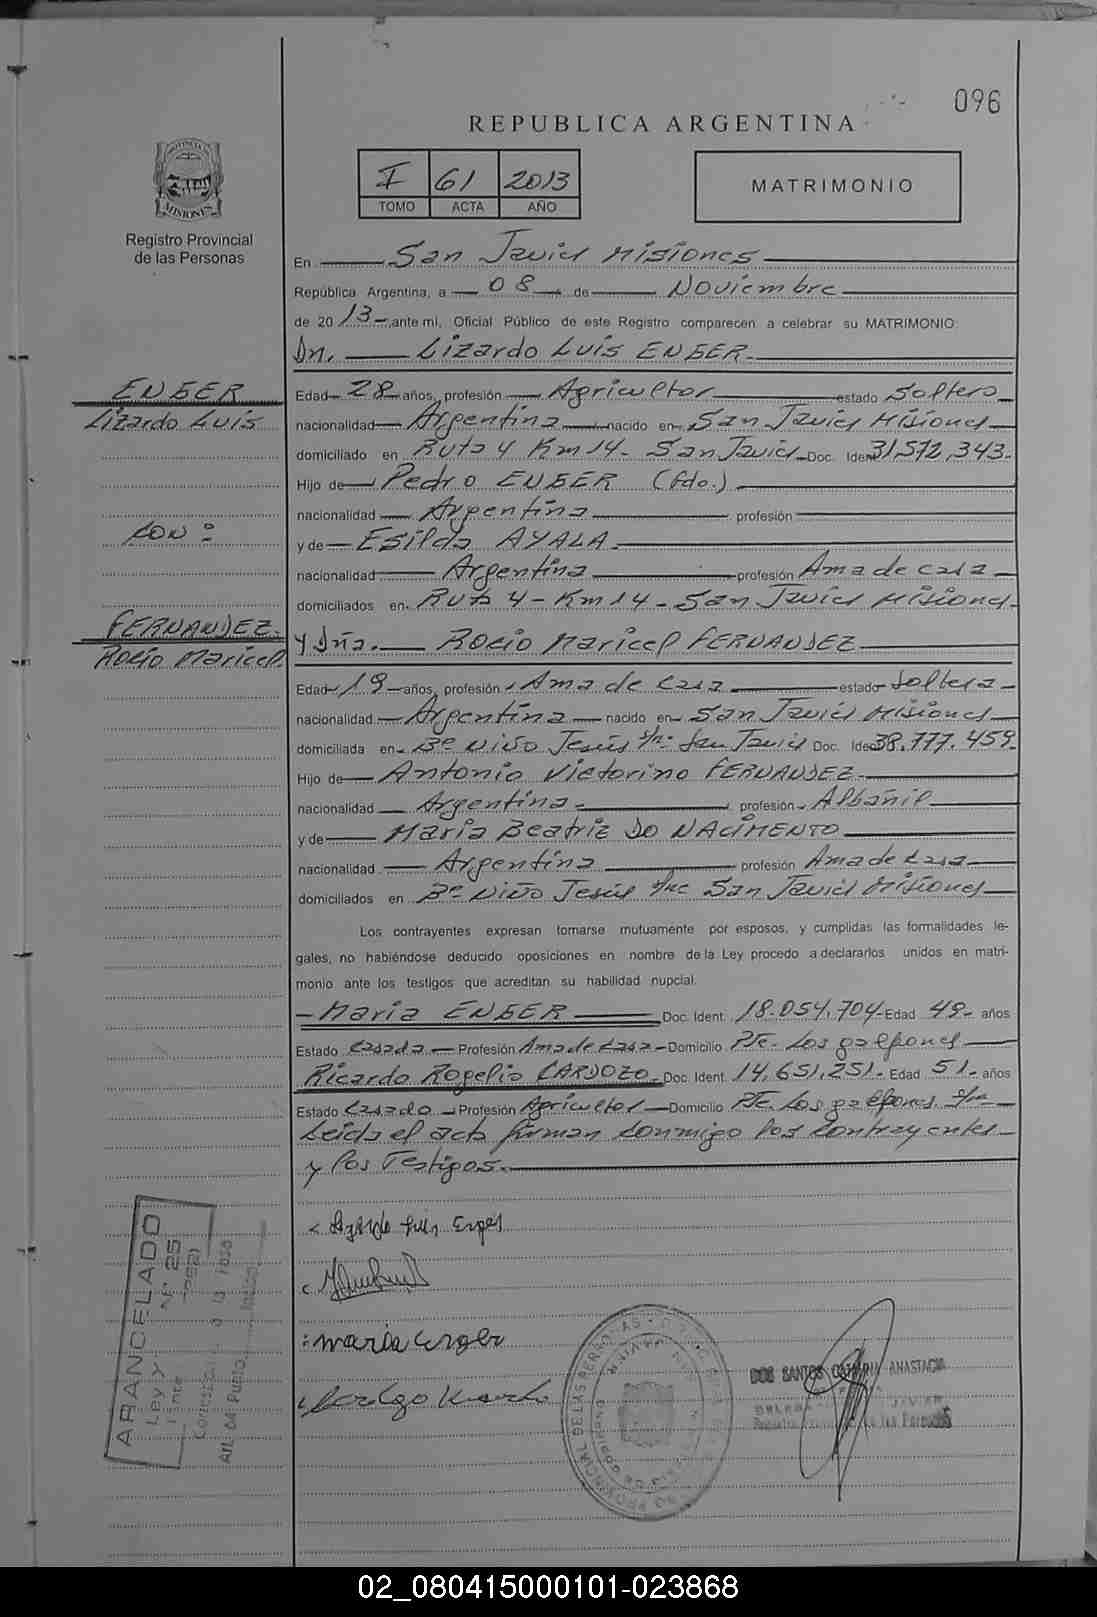 096
REPUBLICA ARGENTINA
PROVINCIA
MISIONES
Registro Provincial
de las Personas
I 61 2013
TOMO ACTA AÑO
MATRIMONIO
En San Javier Misiones
República Argentina, a 08 de Noviembre
de 2013 ante mi, Oficial Público de este Registro comparecen a celebrar su MATRIMONIO:
Dn. Lizardo Luis ENGER.
ENGER
Lizardo Luis
CON:
FERNANDEZ.
Rocío Maricel.
Edad 28 años, profesión Agricultor estado Soltero
nacionalidad Argentina nacido en San Javier Misiones
domiciliado en Ruta 4 Km 14 - San Javier Doc. Ident 31.572.343-
Hijo de Pedro ENGER (fdo.)
nacionalidad Argentina profesión
y de Esilda AYALA.
nacionalidad Argentina profesión Ama de casa
domiciliados en Ruta 4 - Km 14 - San Javier Misiones-
y Dña. Rocío Maricel FERNANDEZ
Edad 19 años, profesión Ama de casa estado Soltera
nacionalidad Argentina nacido en San Javier Misiones
domiciliada en Bº Niño Jesús s/nº San Javier Doc. Iden 38.777.459-
Hijo de Antonio Victorino FERNANDEZ.
nacionalidad Argentina. profesión Albañil
y de María Beatriz DO NACIMENTO
nacionalidad Argentina profesión Ama de casa
domiciliados en Bº Niño Jesús s/nº San Javier Misiones
Los contrayentes expresan tomarse mutuamente por esposos, y cumplidas las formalidades le-
gales, no habiéndose deducido oposiciones en nombre de la Ley procedo a declararlos unidos en matri-
monio ante los testigos que acreditan su habilidad nupcial.
María ENGER Doc. Ident. 18.054.704- Edad 49- años
Estado Casada Profesión Ama de casa Domicilio Pje. Los galpones
Ricardo Rogelio CARDOZO. Doc. Ident. 14.651.251. Edad 51- años
Estado Casado Profesión Agricultor Domicilio Pje. Los galpones s/nº
Leída el acta firman conmigo los contrayentes
y los testigos.
Lizardo Luis Enger
maria enger
ARANCELADO
Ley X Nº 25
DOS SANTOS CATALINA ANASTACIA
02_080415000101-023868